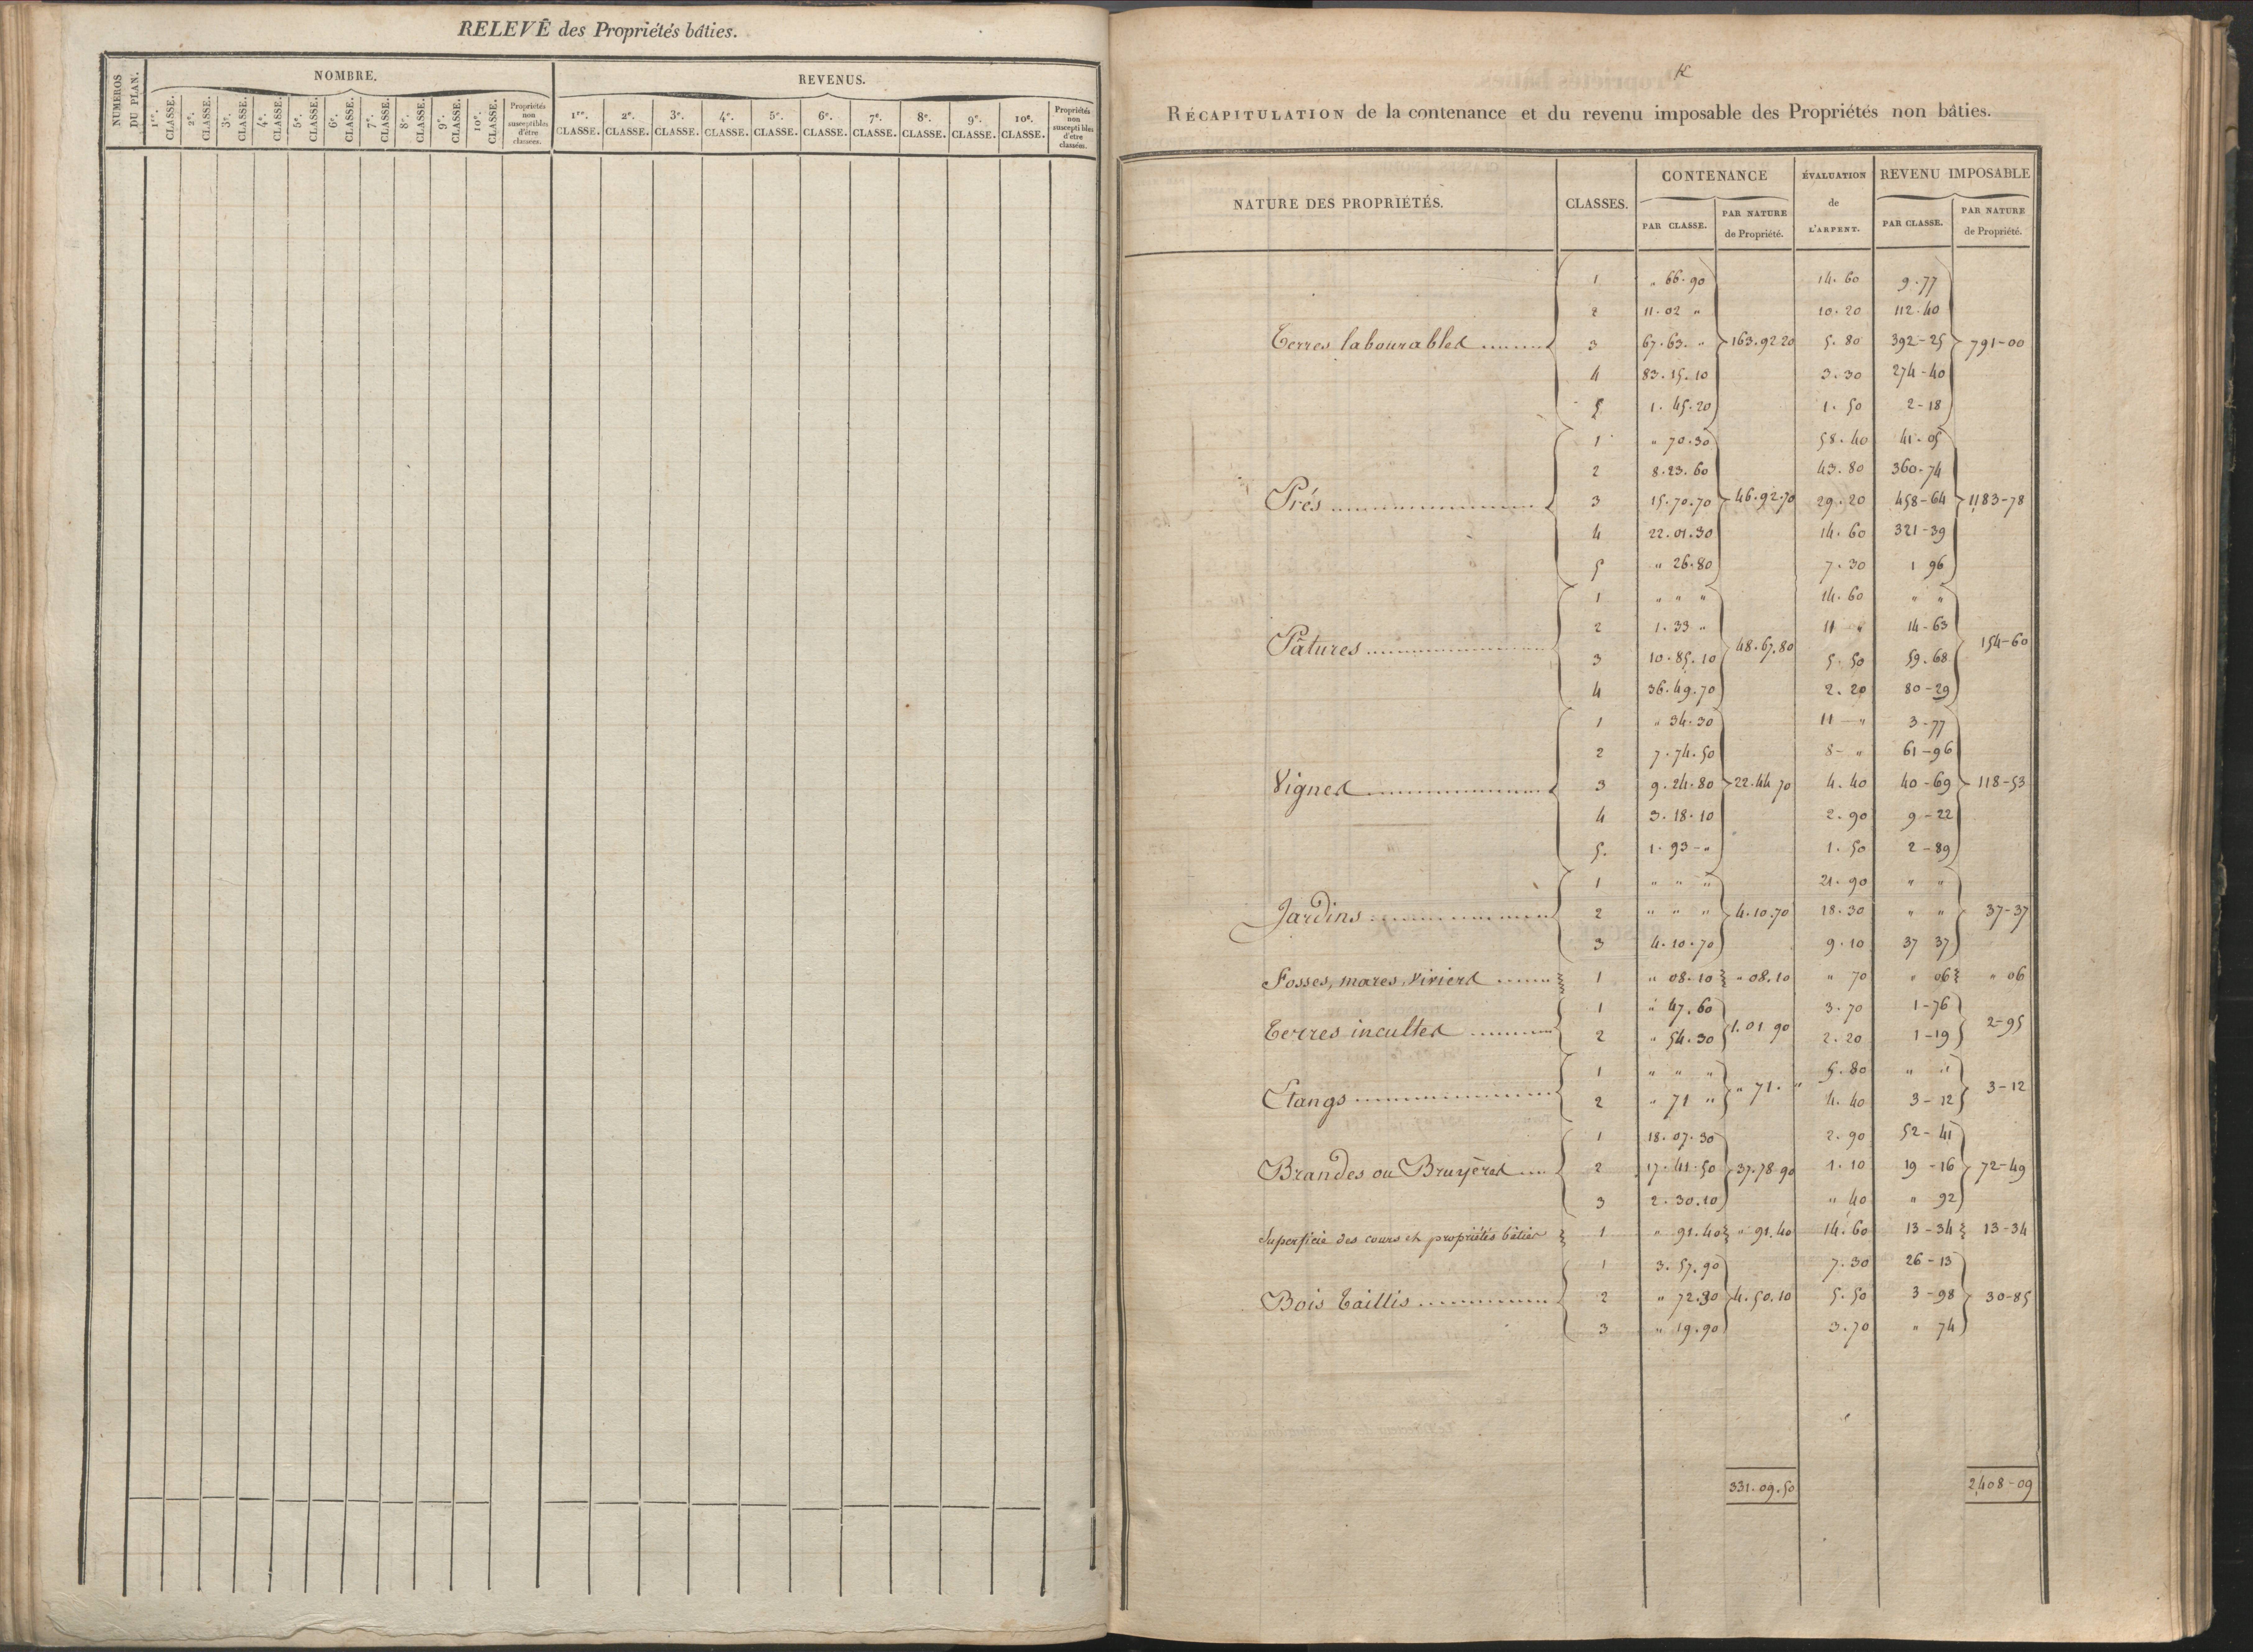 RELEVÉ des Propriétés bâties.
NUMEROS DU PLAN.
NOMBRE.
REVENUS.
1re. CLASSE. 2e. CLASSE. 3e. CLASSE. 4e. CLASSE. 5e. CLASSE. 6e. CLASSE. 7e. CLASSE. 8e. CLASSE. 9e. CLASSE. 10e. CLASSE. Propriétés non susceptibles d'être classées.
1re. CLASSE. 2e. CLASSE. 3e. CLASSE. 4e. CLASSE. 5e. CLASSE. 6e. CLASSE. 7e. CLASSE. 8e. CLASSE. 9e. CLASSE. 10e. CLASSE. Propriétés non susceptibles d'être classées.
RÉCAPITULATION de la contenance et du revenu imposable des Propriétés non bâties.
NATURE DES PROPRIÉTÉS. CLASSES. CONTENANCE ÉVALUATION de L'ARPENT. REVENU IMPOSABLE
PAR CLASSE. PAR NATURE de Propriété. PAR CLASSE. PAR NATURE de Propriété.
1 " 66.90 14.60 9.77
2 11.02 " 10.20 112.40
Terres labourables ........ 3 67.63. " 163.92 20 5.80 392-25 791-00
4 83.15.10 3.30 274-40
5 1.45.20 1.50 2-18
1 " 70.30 58.40 41.05
2 8.23.60 43.80 360.74
Prés ........ 3 15.70.70 46.92.70 29.20 458-64 1183-78
4 22.01.30 14.60 321-39
5 " 26.80 7.30 1 96
1 " " " 14.60 " "
2 1.33 " 11 " 14-63
Pâtures ........ 48.67.80 154-60
3 10.85.10 5.50 59.68
4 36.49.70 2.20 80-29
1 " 34.30 11 - " 3-77
2 7.74.50 8- " 61-96
Vignes ........ 3 9.24.80 22.44 70 4.40 40-69 118-53
4 3.18.10 2.90 9-22
5. 1.93-" 1.50 2-89
1 " " " 21.90 " "
Jardins ........ 2 " " " 4.10.70 18.30 " " 37-37
3 4.10.70 9.10 37 37
Fosses, mares, viviers ....... 1 " 08.10 " 08.10 " 70 " 06 " 06
1 " 47.60 3.70 1-76
Terres incultes ........ 1.01 90 2-95
2 " 54.30 2.20 1-19
1 " " " 5.80 " "
Etangs ........ " 71. " 3-12
2 " 71 " 4.40 3-12
1 18.07.30 2.90 52-41
Brandes ou Bruyères .... 2 17.41.50 37.78 90 1.10 19-16 72-49
3 2.30.10 " 40 " 92
Superficie des cours et propriétés bâties 1 " 91.40 " 91.40 14.60 13-34 13-34
1 3.57.90 7.30 26-13
Bois taillis ........ 2 " 72.30 4.50.10 5.50 3-98 30-85
3 " 19.90 3.70 " 74
331.09.50 2,408-09